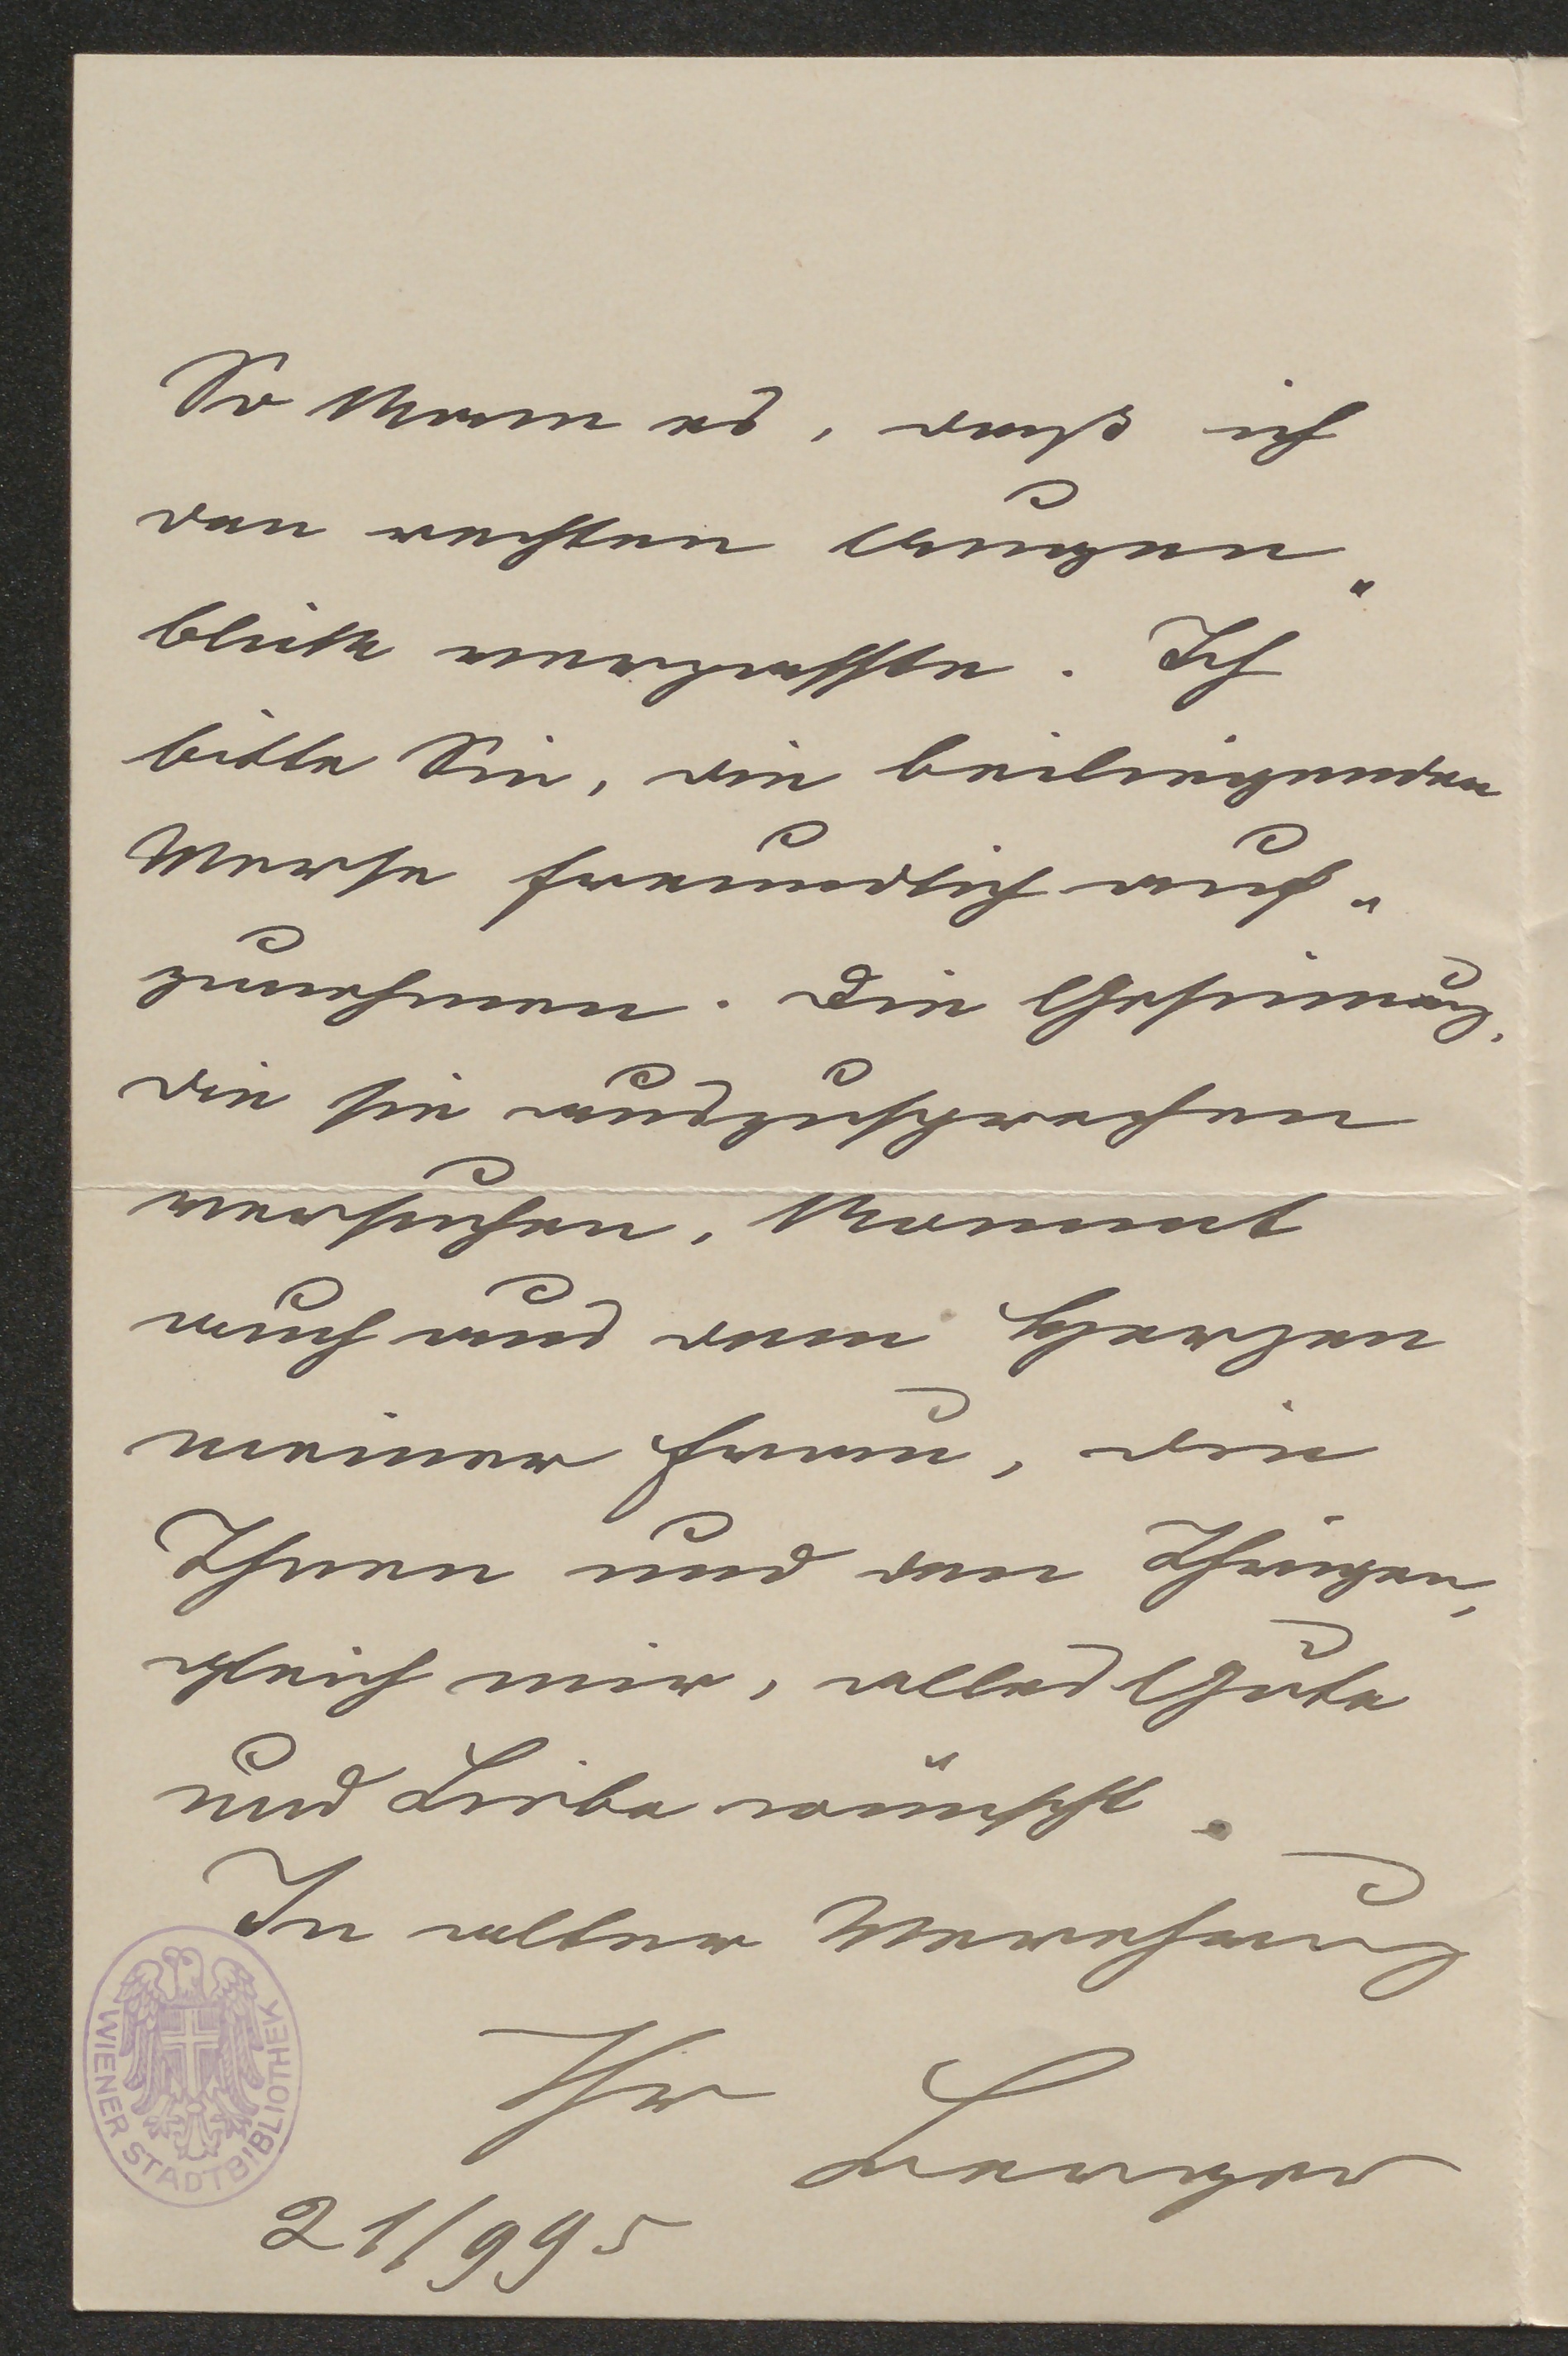 So kam es, daß ich
den rechten Augen„
blick verpasste. Ich
bitte Sie, die beiliegenden
Verse freundlich auf„
zunehmen. Die Gesinnung,
die sie auszusprechen
versuchen, kommt
auch aus dem Herzen
meiner Frau, die
Ihnen und den Ihrigen,
gleich mir, alles Gute
und Liebe wünscht.
In alter Verehrung
Ihr
21/995
WIENER STADTBIBLIOTHEK